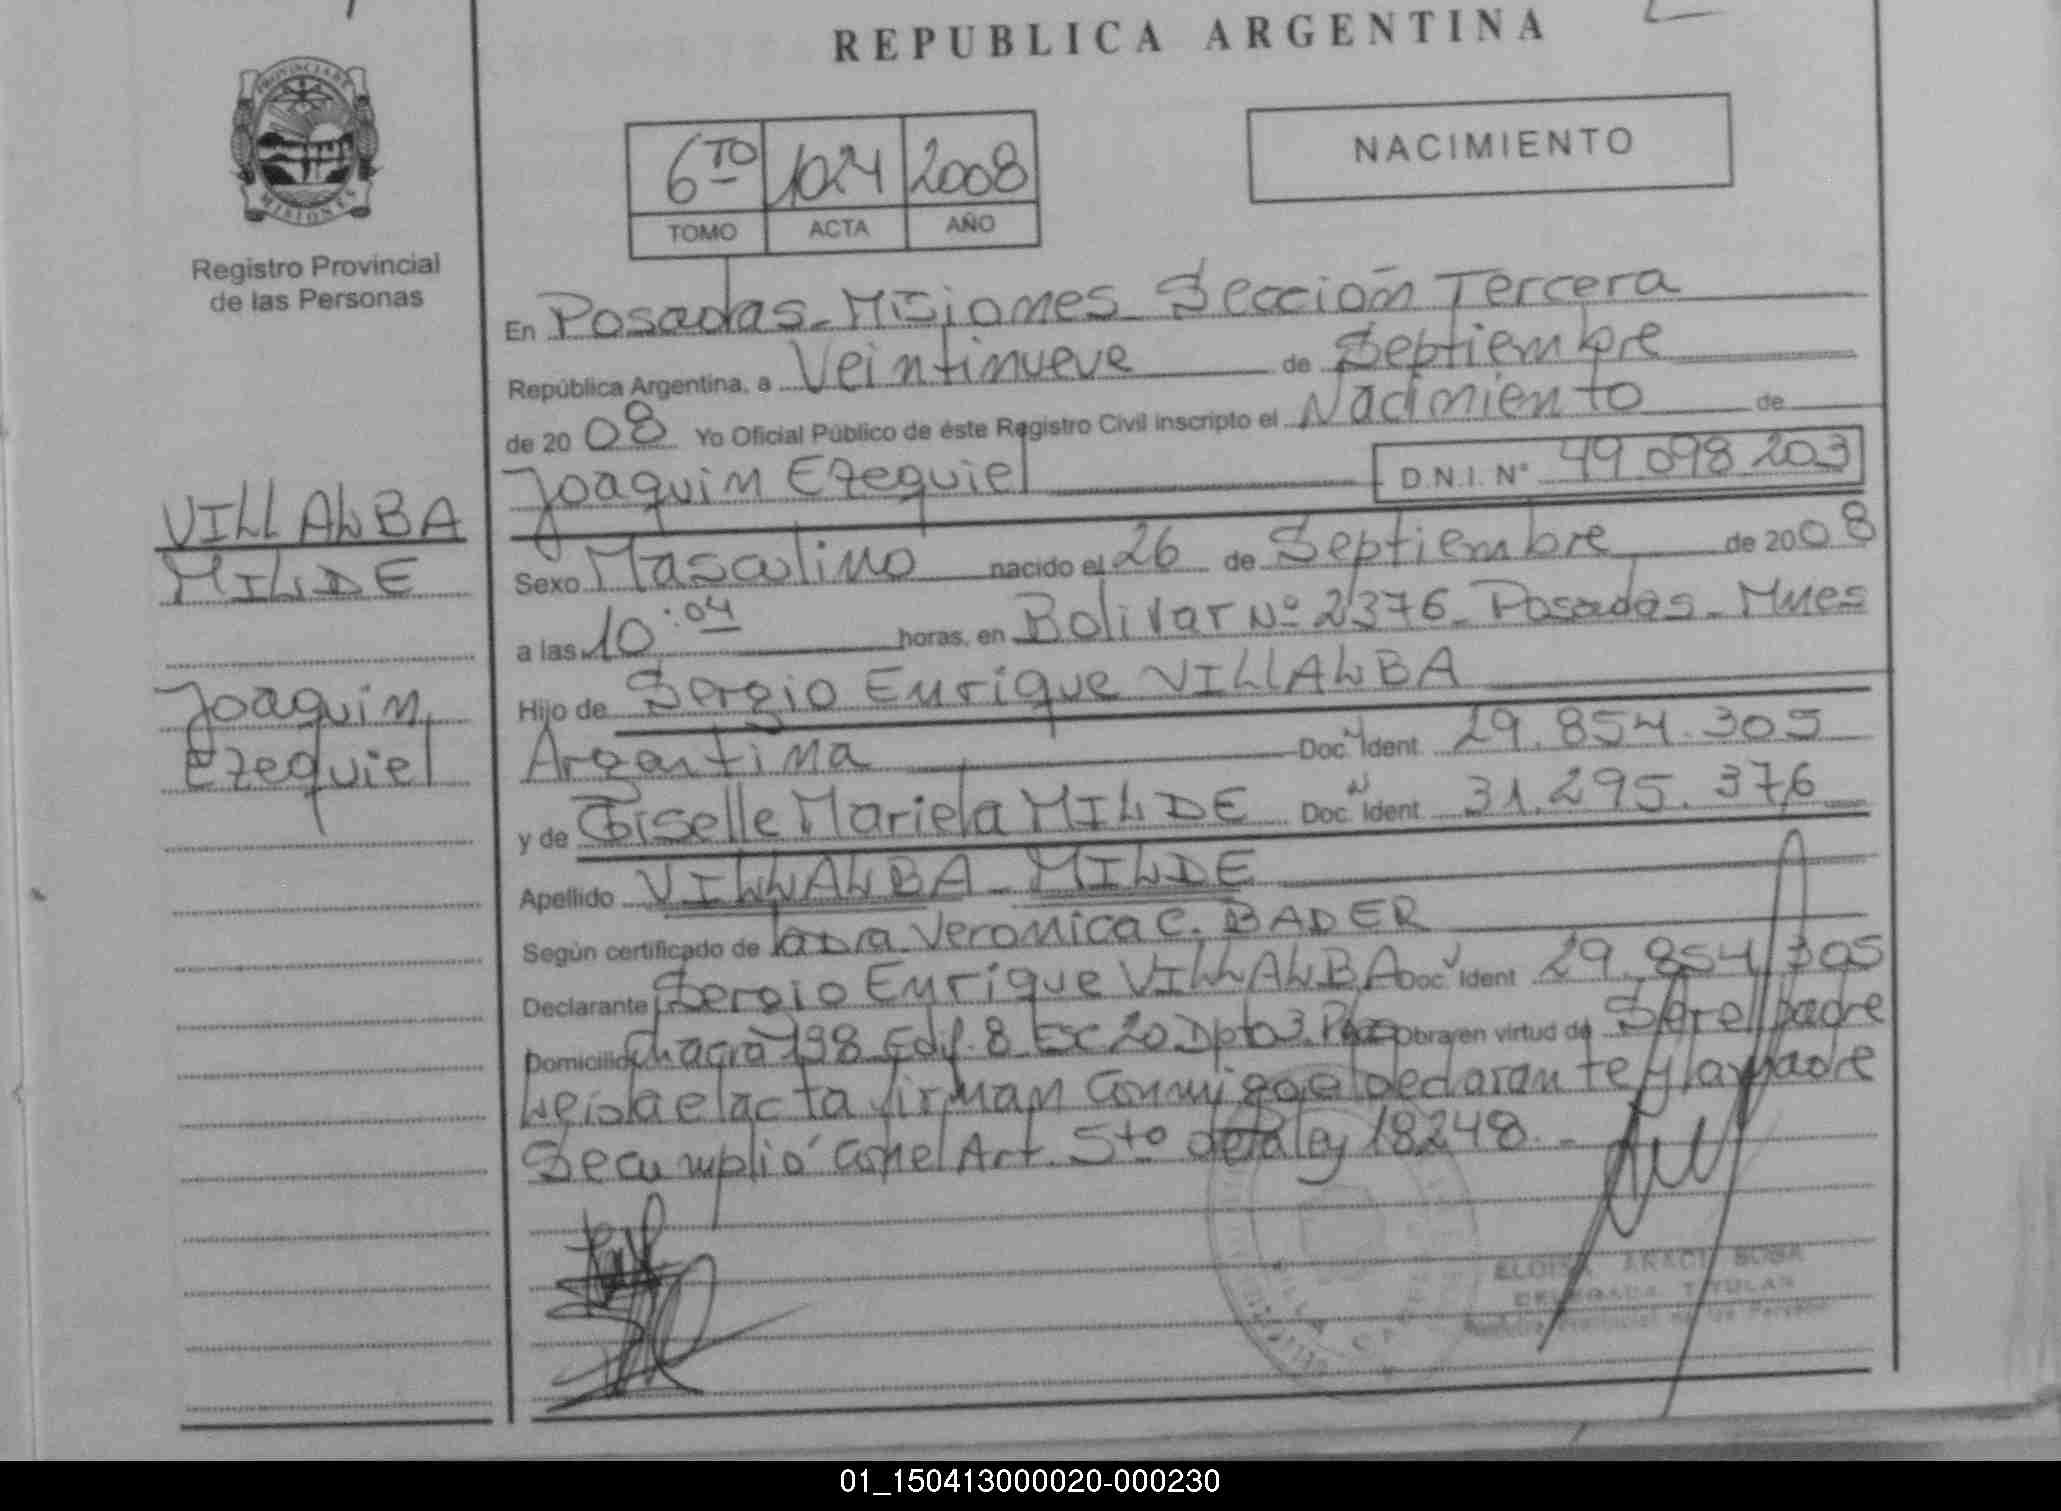 REPUBLICA ARGENTINA
PROVINCIA DE
MISIONES
Registro Provincial
de las Personas
6TO 1024 2008
TOMO ACTA AÑO
NACIMIENTO
En Posadas - Misiones - Sección Tercera
República Argentina, a Veintinueve de Septiembre
de 2008 Yo Oficial Público de éste Registro Civil inscripto el Nacimiento de
Joaquin Ezequiel D.N.I. N° 49 098 203
VILLALBA
MILDE
Joaquin
Ezequiel
Sexo Masculino nacido el 26 de Septiembre de 2008
a las 10:04 horas, en Bolivar Nº 2376 - Posadas - Mnes
Hijo de Sergio Enrique VILLALBA
Argentina Doc. Ident 29.854.305
y de Giselle Mariela MILDE Doc. Ident 31.295.376
Apellido VILLALBA - MILDE
Según certificado de Veronica C. BADER
Declarante Sergio Enrique VILLALBA Doc. Ident 29.854.305
Domicilio Chacra 198 Edif. 8 Esc 20 Dpto 3. Obra en virtud de Ser el padre
Leida el acta firman Conmigo el declarante y la madre
Se cumplió con el Art. 5to de la ley 18248. -
ELOISA ARACI SOSA
DELEGADA TITULAR
Registro Provincial de las Personas
01_150413000020-000230